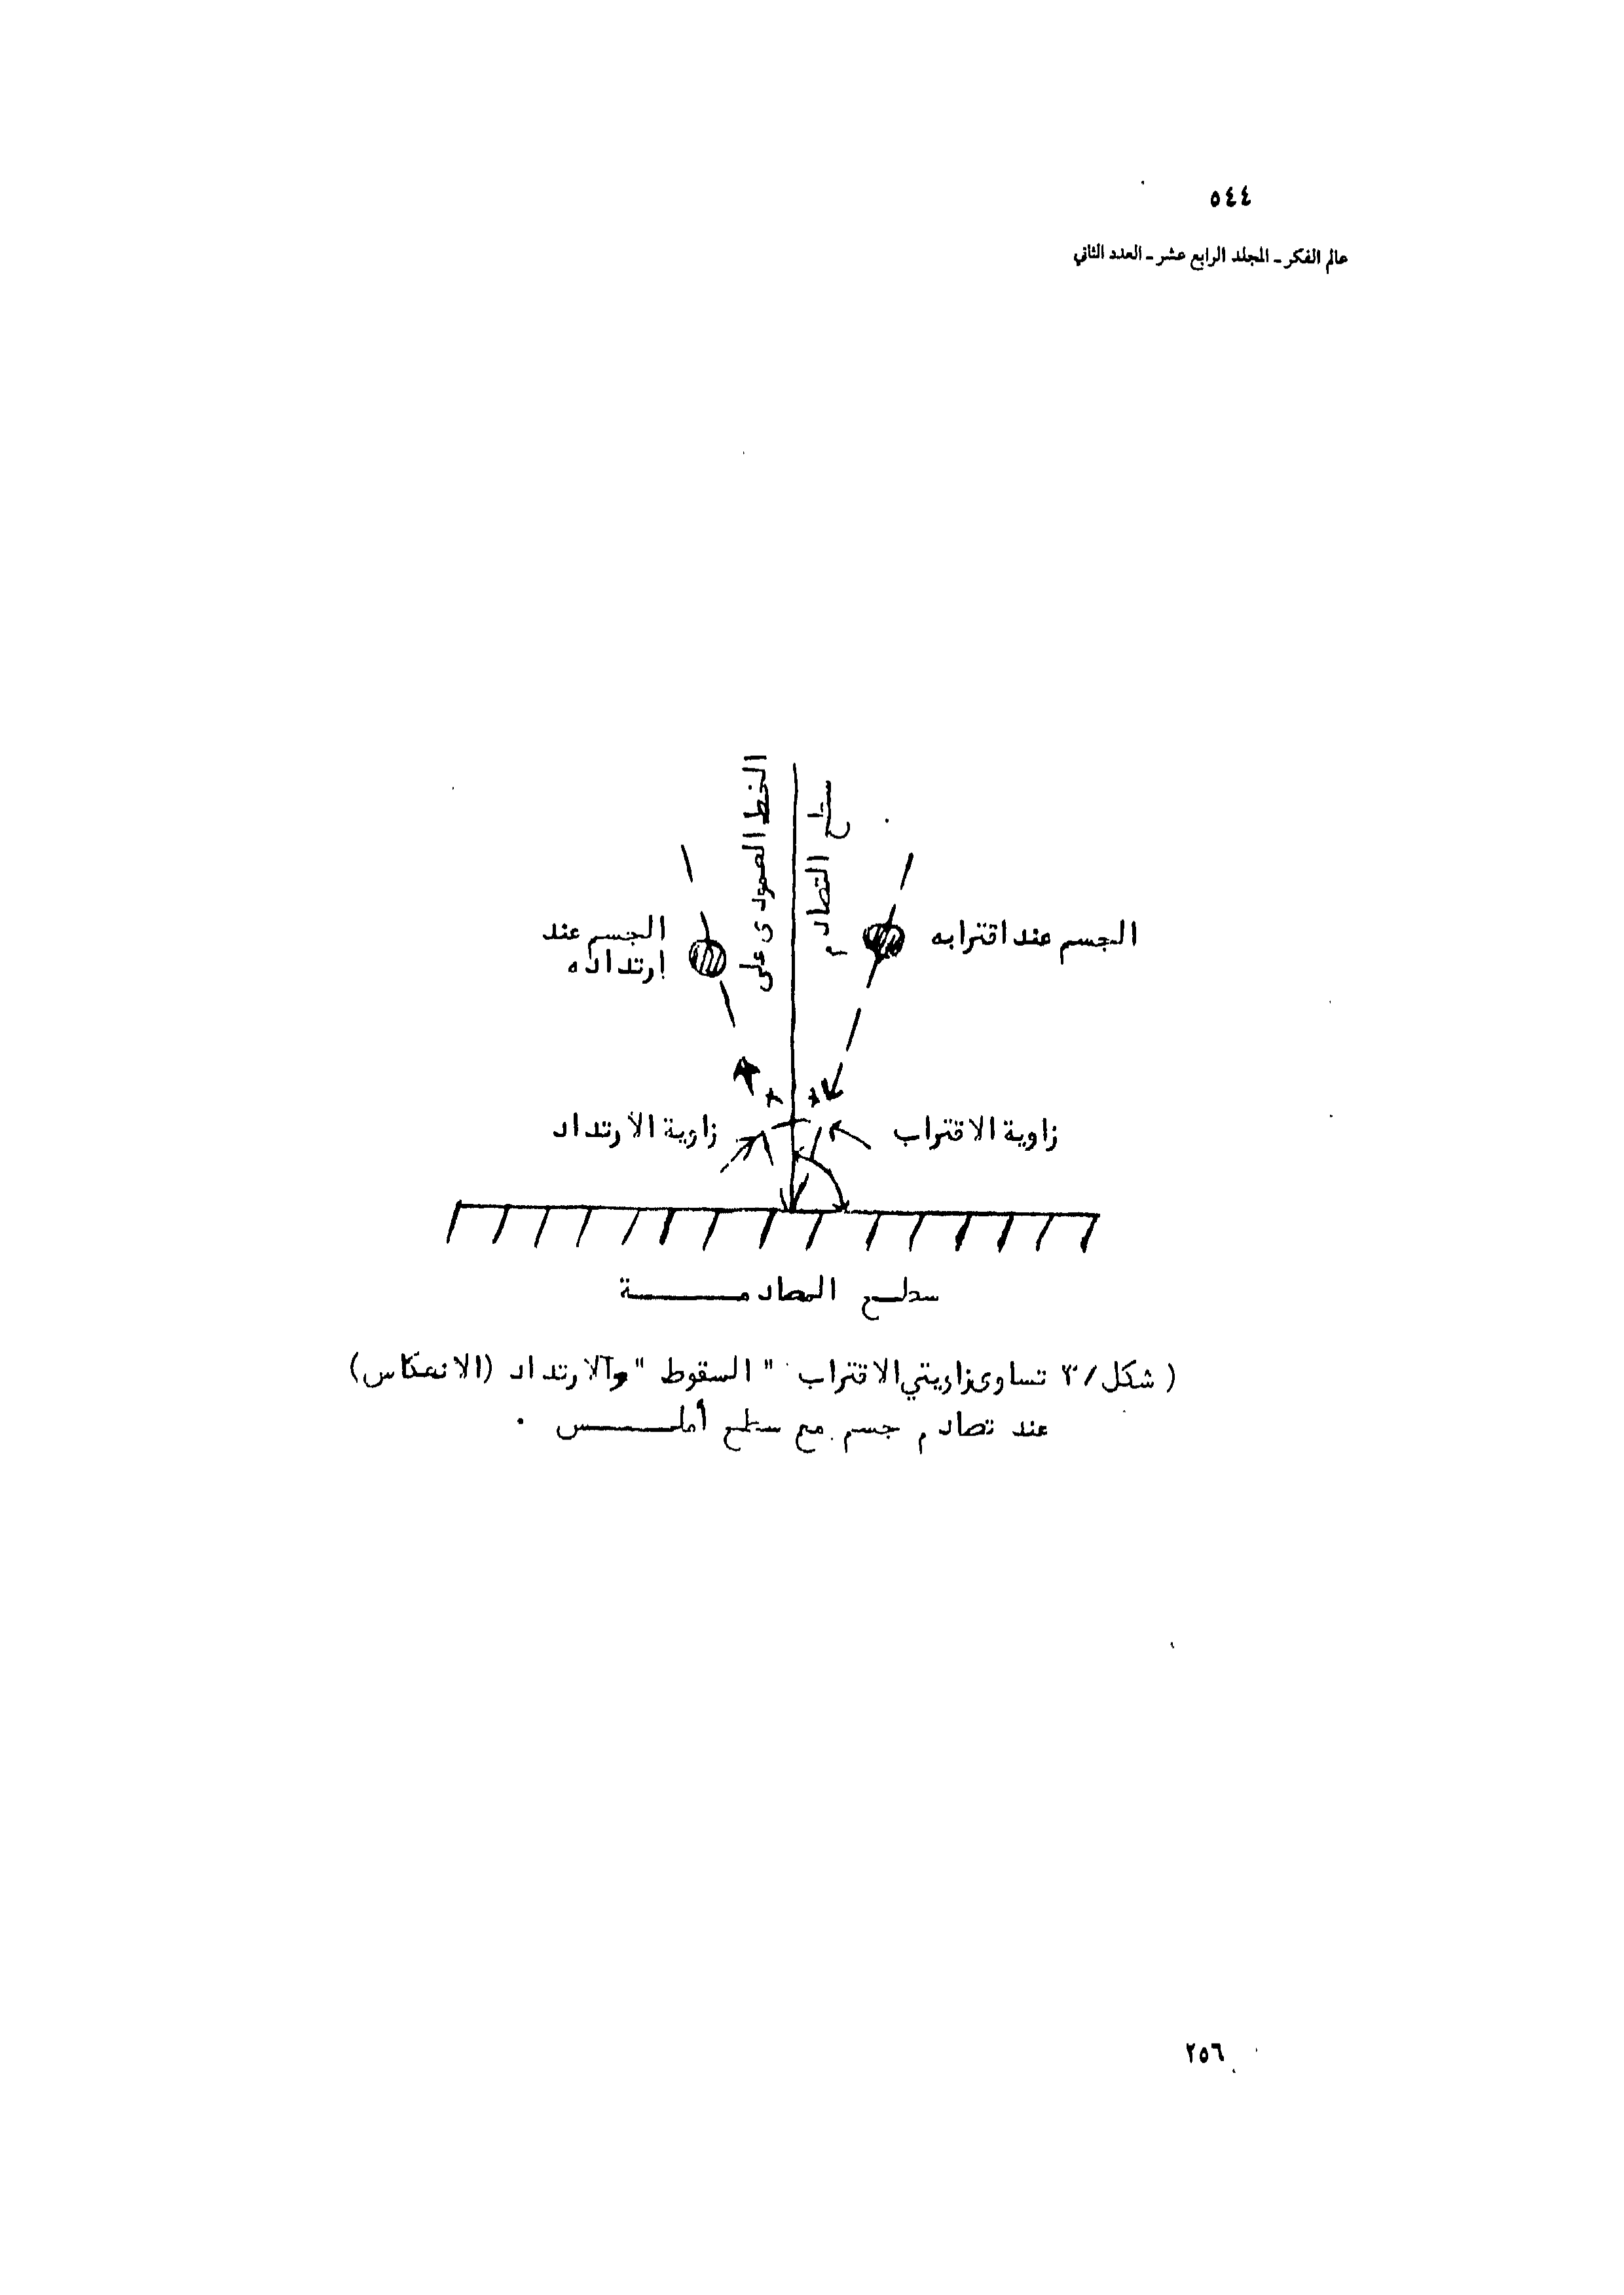 ٥٤٤
عالم الفكر - المجلد الرابع عشر - العدد الثاني
الخط العمودى على
سطح التصادم
الجسم عند اقترابه
الجسم عند
ارتداده
زاوية الاقتراب
زاوية الارتداد
سطح المصادمة
( شكل/٣ تساوى زاويتي الاقتراب " السقوط " والارتداد (الانعكاس)
عند تصادم جسم مع سطح أملس .
٢٥٦